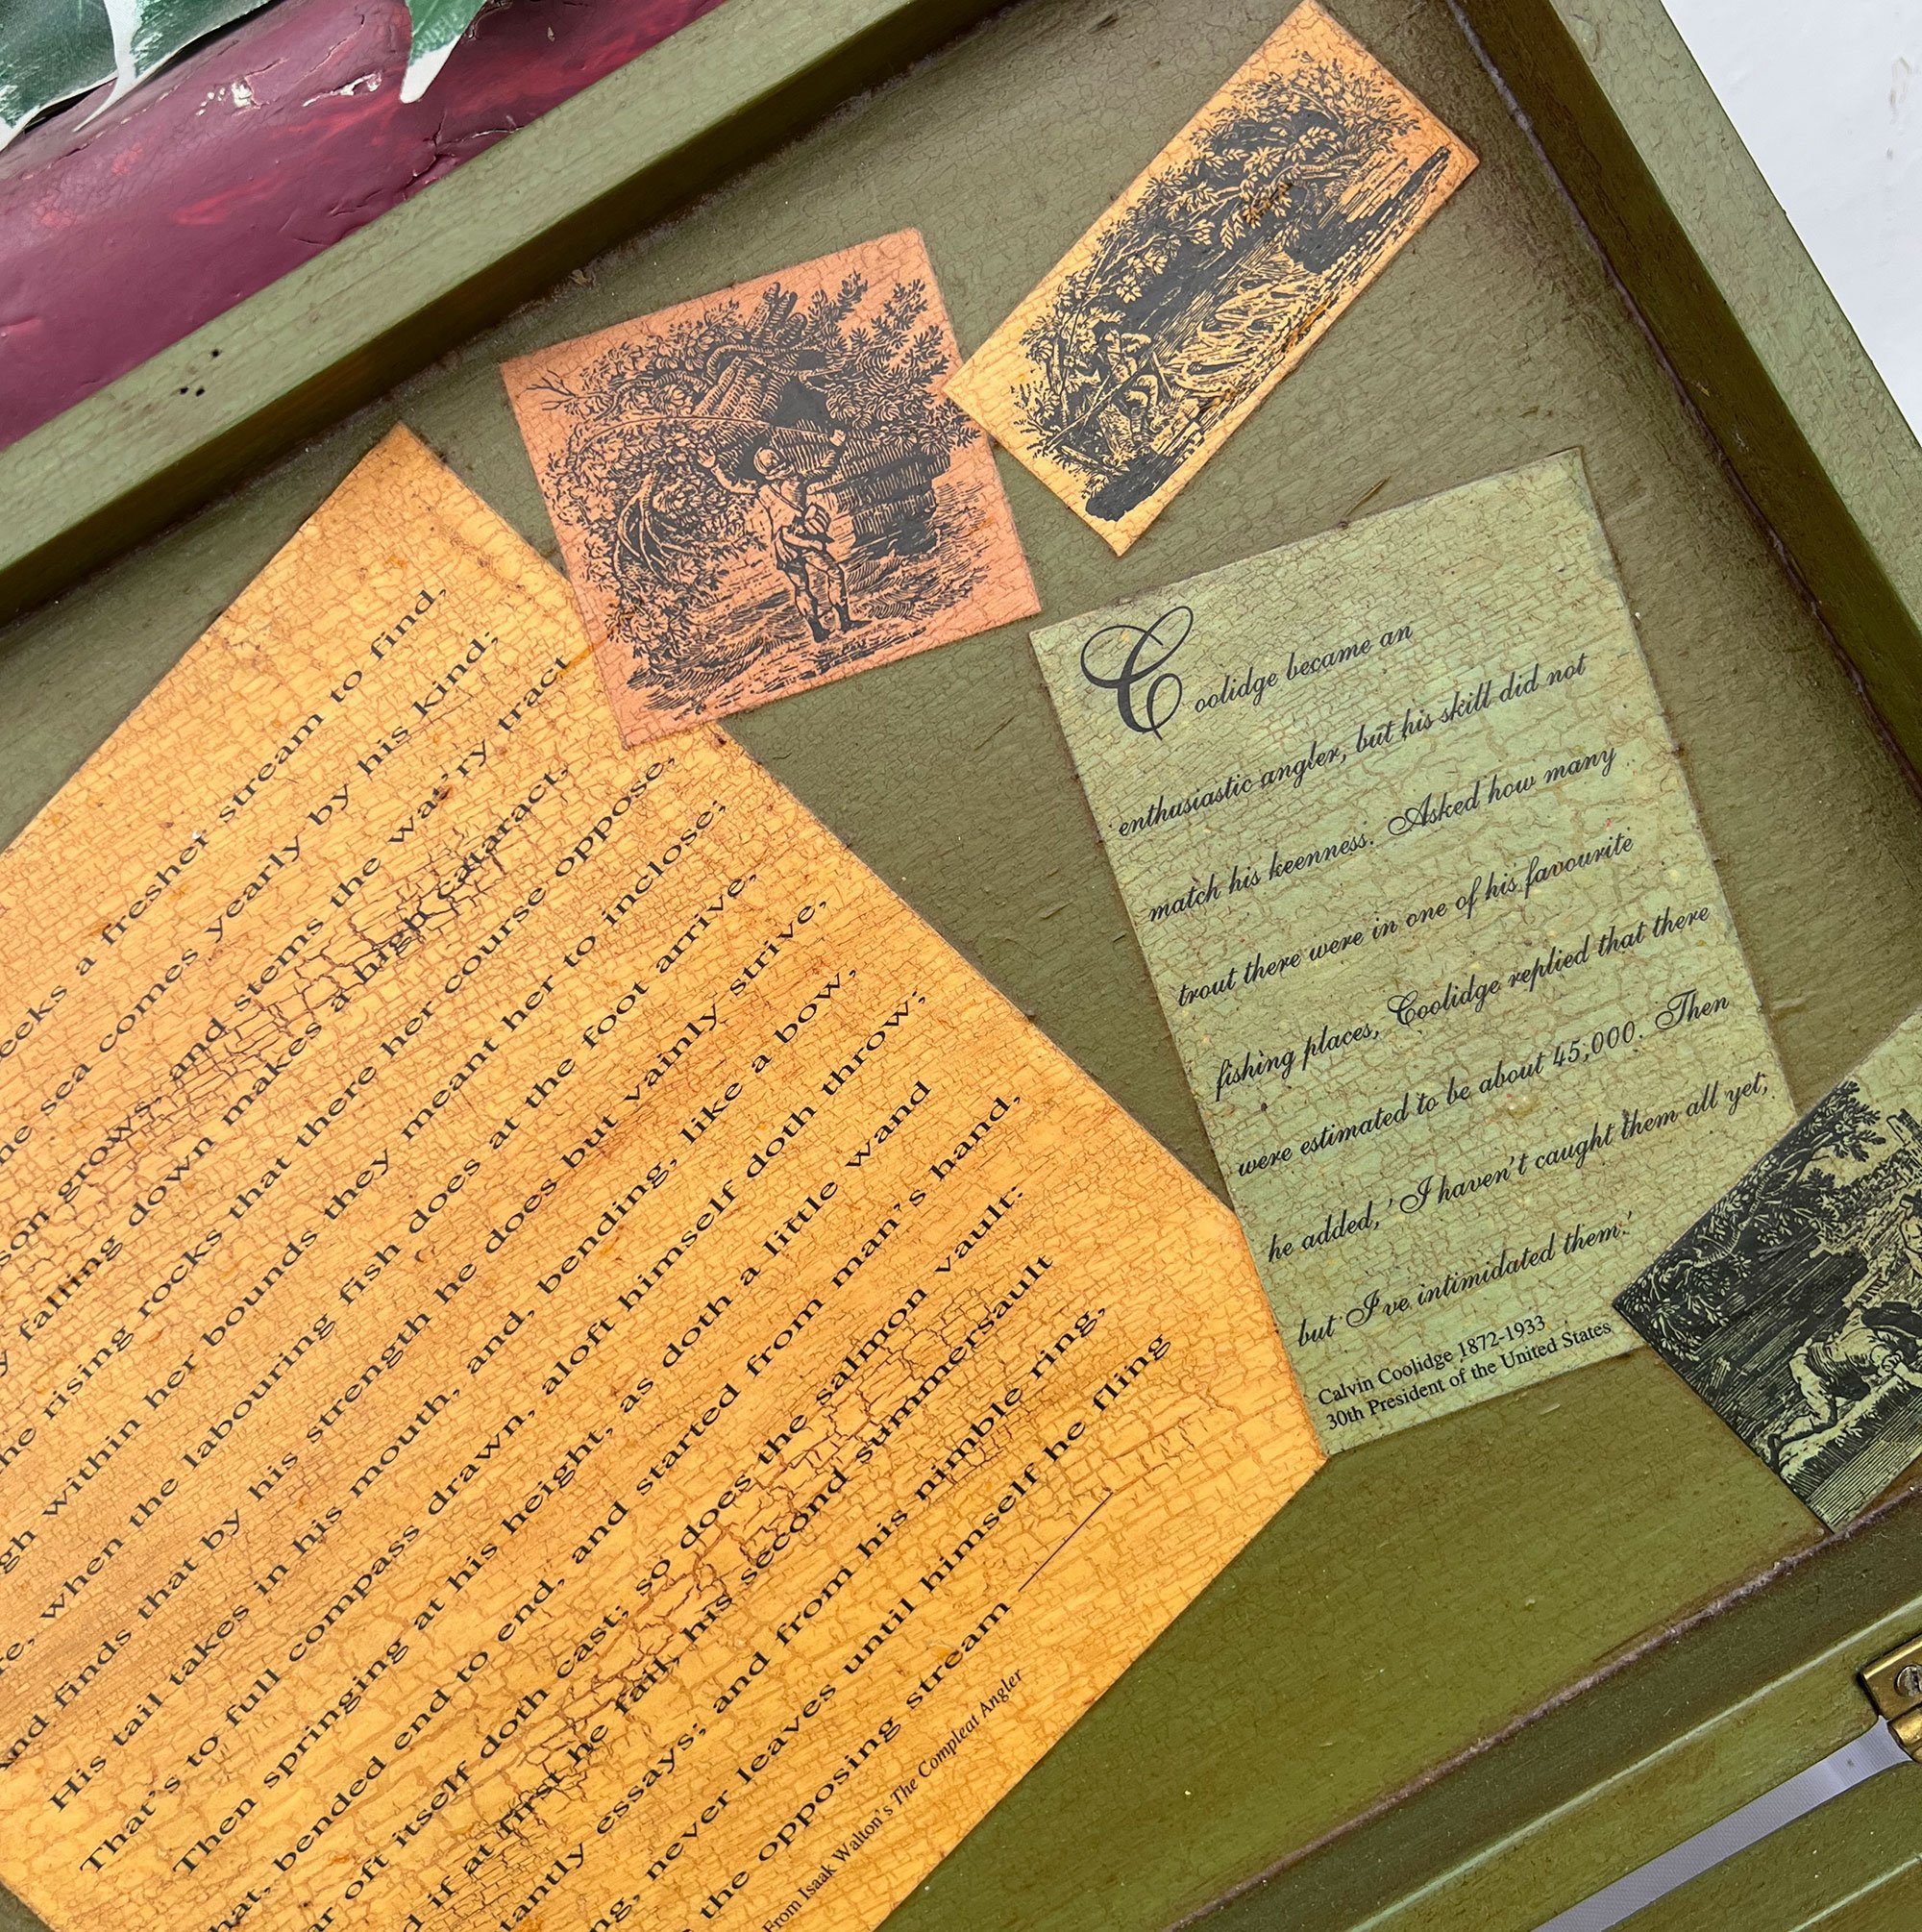 a fresher stream to find,
sea comes yearly by his kind;
grows, and stems the wat'ry tract
falling down makes a high cataract,
rising rocks that there her course oppose,
within her bounds they meant her to inclose;
when the labouring fish does at the foot arrive,
And finds that by his strength he does but vainly strive,
His tail takes in his mouth, and, bending, like a bow,
That's to full compass drawn, aloft himself doth throw;
Then springing at his height, as doth a little wand
bended end to end, and started from man's hand,
oft itself doth cast; so does the salmon vault:
if at first he fail, his second summersault
essays; and from his nimble ring,
never leaves until himself he fling
the opposing stream
From Isaak Walton's The Compleat Angler
Coolidge became an
enthusiastic angler, but his skill did not
match his keenness. Asked how many
trout there were in one of his favourite
fishing places, Coolidge replied that there
were estimated to be about 45,000. Then
he added, 'I haven't caught them all yet,
but I've intimidated them.'
Calvin Coolidge 1872-1933
30th President of the United States